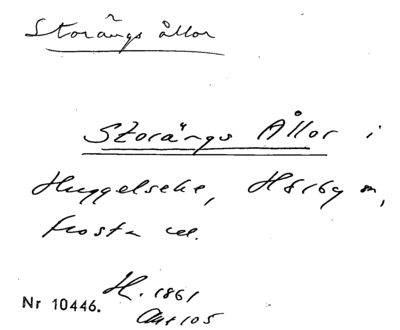 Storängs ållor
Storängs Ållor i
Huggelseke, Hörby sn,
Frosta
Nr 10446. H. 1861
105